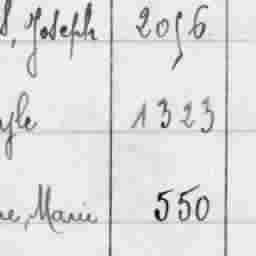 , Joseph 2056
1323
ne, Marie 550